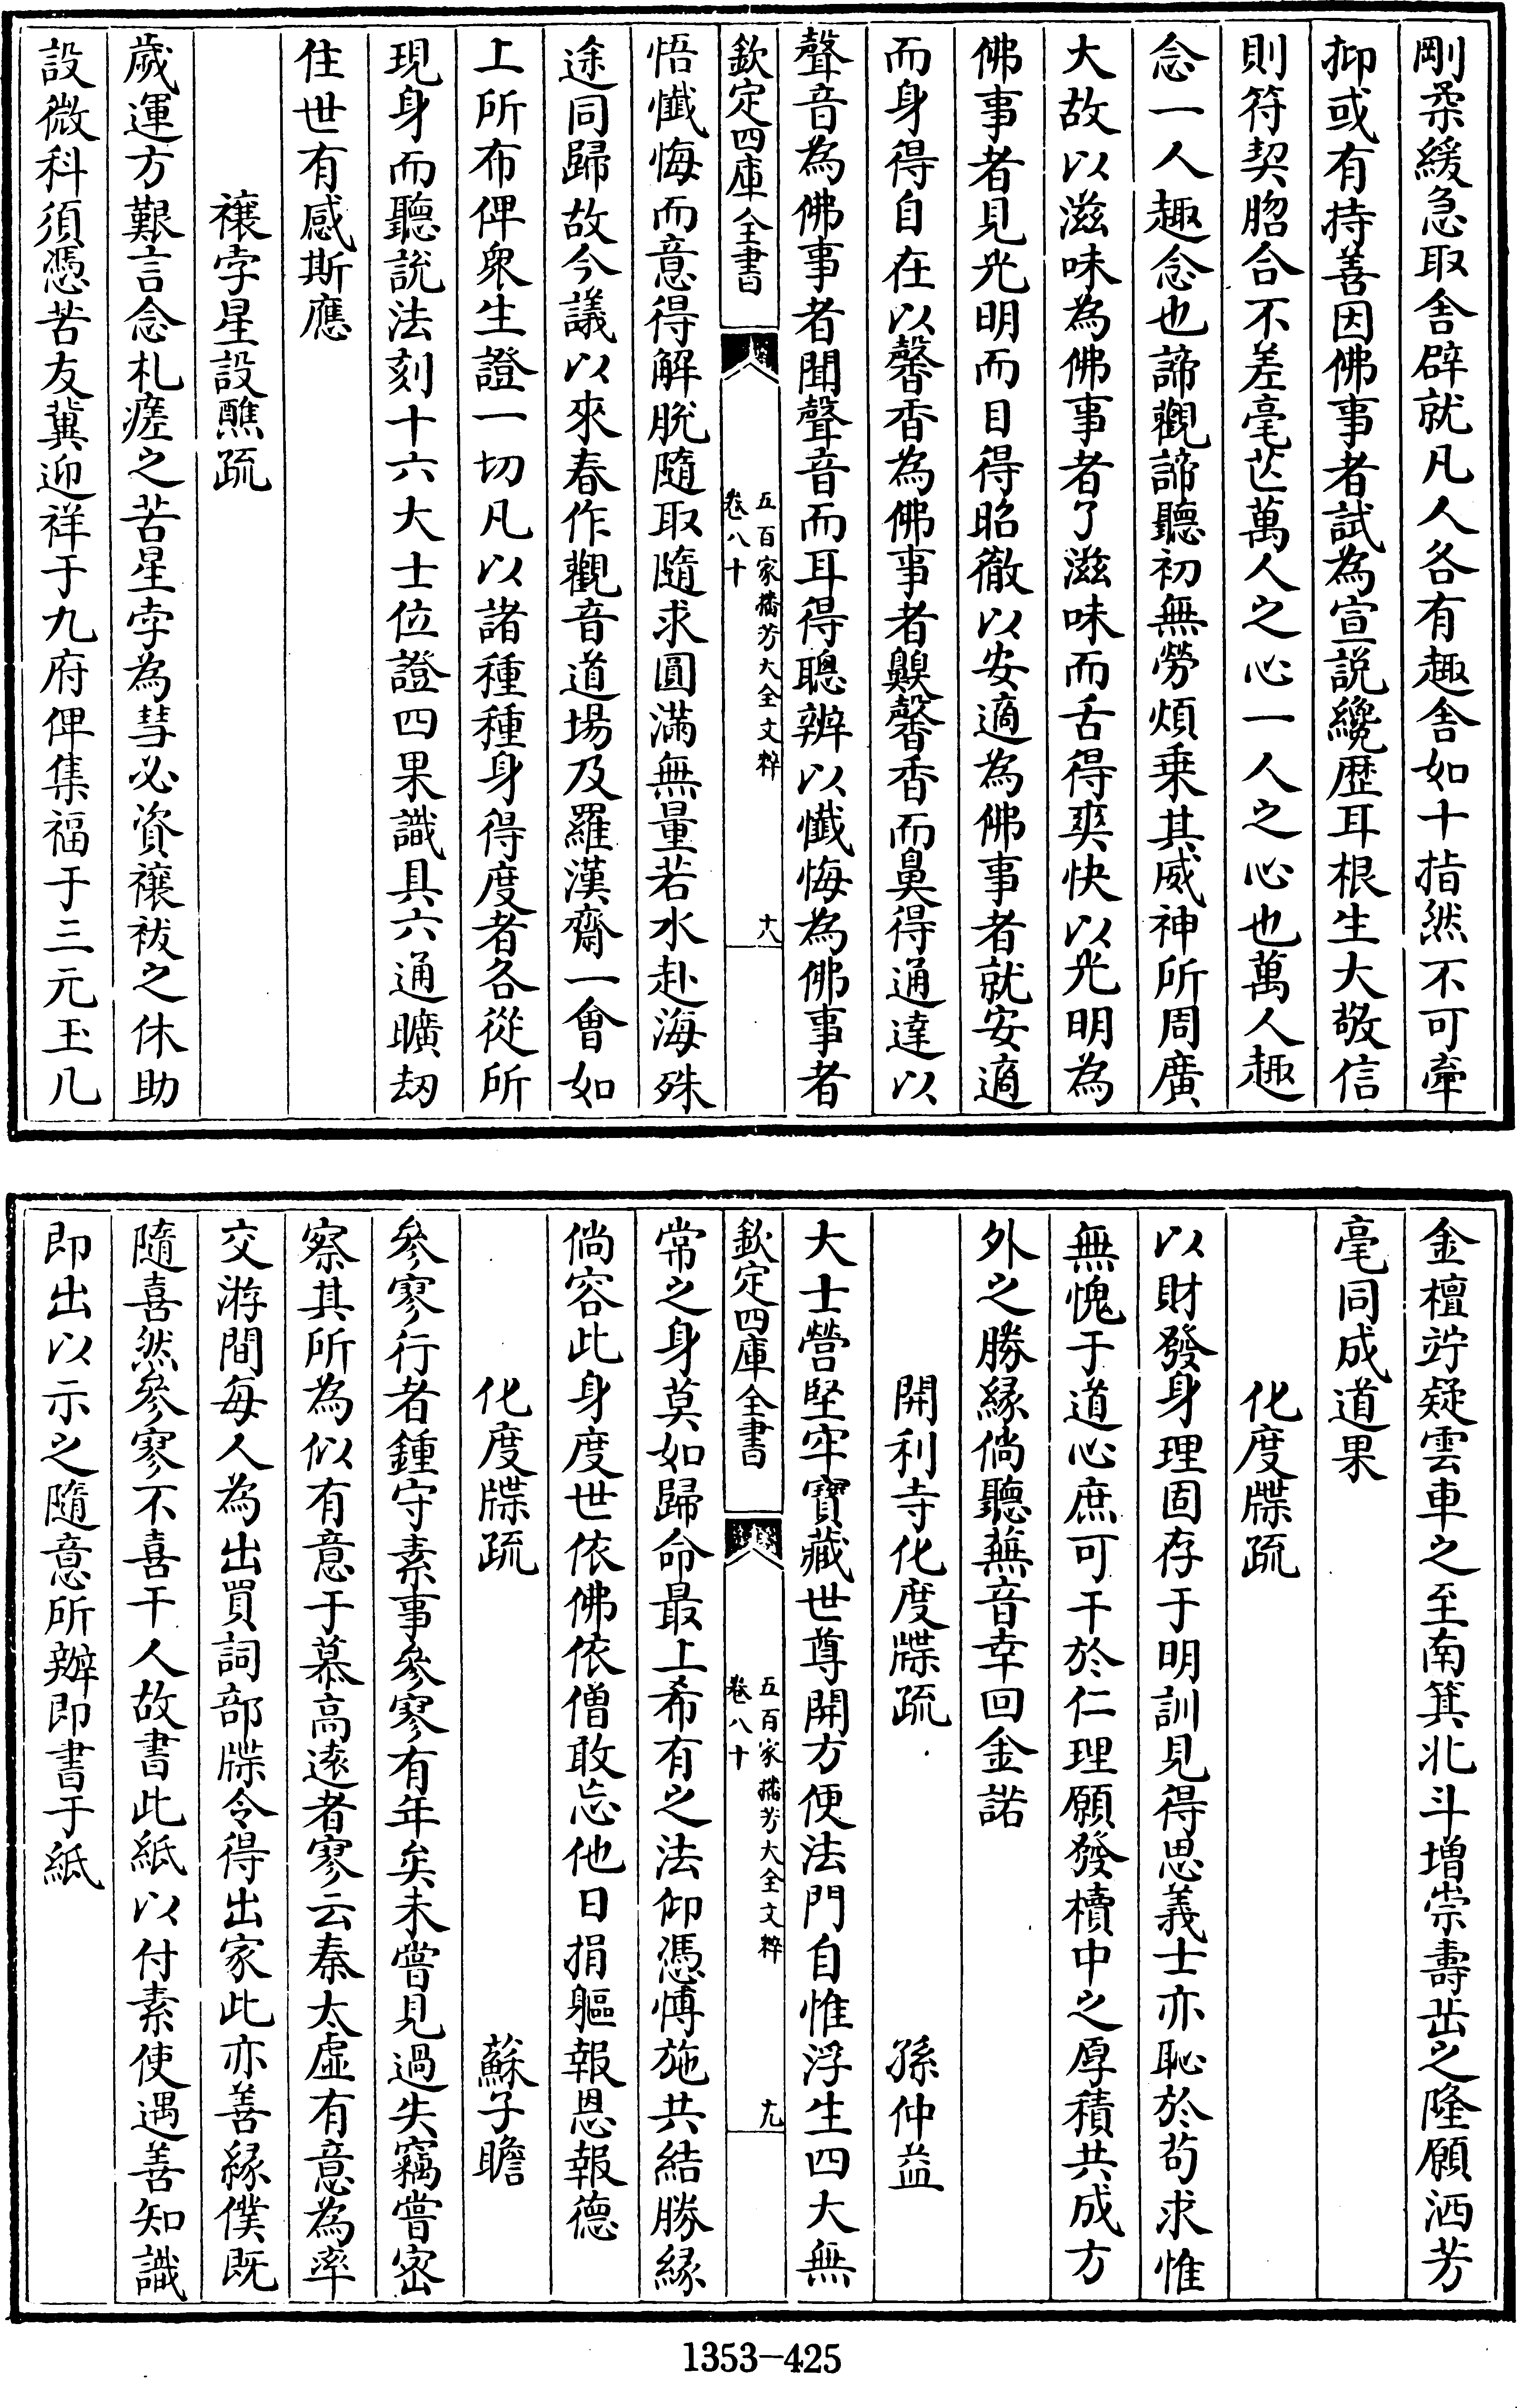 剛柔緩急取舍辟就凡人各有趣舍如十指然不可牽
抑或有持善因佛事者試為宣説纔歴耳根生大敬信
則符契脗合不差毫芒萬人之心一人之心也萬人趣
念一人趣念也諦觀諦聽初無勞煩乗其威神所周廣
大故以滋味為佛事者了滋味而舌得爽快以光明為
佛事者見光明而目得昭徹以安適為佛事者就安適
而身得自在以馨香為佛事者齅馨香而鼻得通達以
聲音為佛事者聞聲音而耳得聰辨以懺悔為佛事者
欽定四庫全書
五百家播芳大全文粹
卷八十
十八
悟懺悔而意得解脱隨取隨求圓滿無量若水赴海殊
途同歸故今議以來春作觀音道場及羅漢齋一會如
上所布俾衆生證一切凡以諸種種身得度者各從所
現身而聽説法刻十六大士位證四果識具六通曠刼
住世有感斯應
禳孛星設醮疏
歲運方艱言念札瘥之苦星孛為彗必資禳祓之休助
設微科須憑苦友冀迎祥于九府俾集福于三元玉几
金檀竚疑雲車之至南箕北斗增崇壽岳之隆願洒芳
毫同成道果
化度牒疏
以財發身理固存于明訓見得思義士亦恥於苟求惟
無愧于道心庶可干於仁理願發櫝中之厚積共成方
外之勝緣倘聽蕪音幸回金諾
開利寺化度牒疏
孫仲益
大士營堅牢寶藏世尊開方便法門自惟浮生四大無
欽定四庫全書
五百家播芳大全文粹
卷八十
十九
常之身莫如歸命最上希有之法仰憑愽施共結勝緣
倘容此身度世依佛依僧敢忘他日捐軀報恩報德
化度牒疏
蘇子瞻
參寥行者鍾守素事參寥有年矣未嘗見過失竊嘗密
察其所為似有意于慕高遠者寥云秦太虚有意為率
交游間每人為出買詞部牒令得出家此亦善緣僕既
隨喜然參寥不喜干人故書此紙以付素使遇善知識
即出以示之隨意所辦即書于紙
1353-425